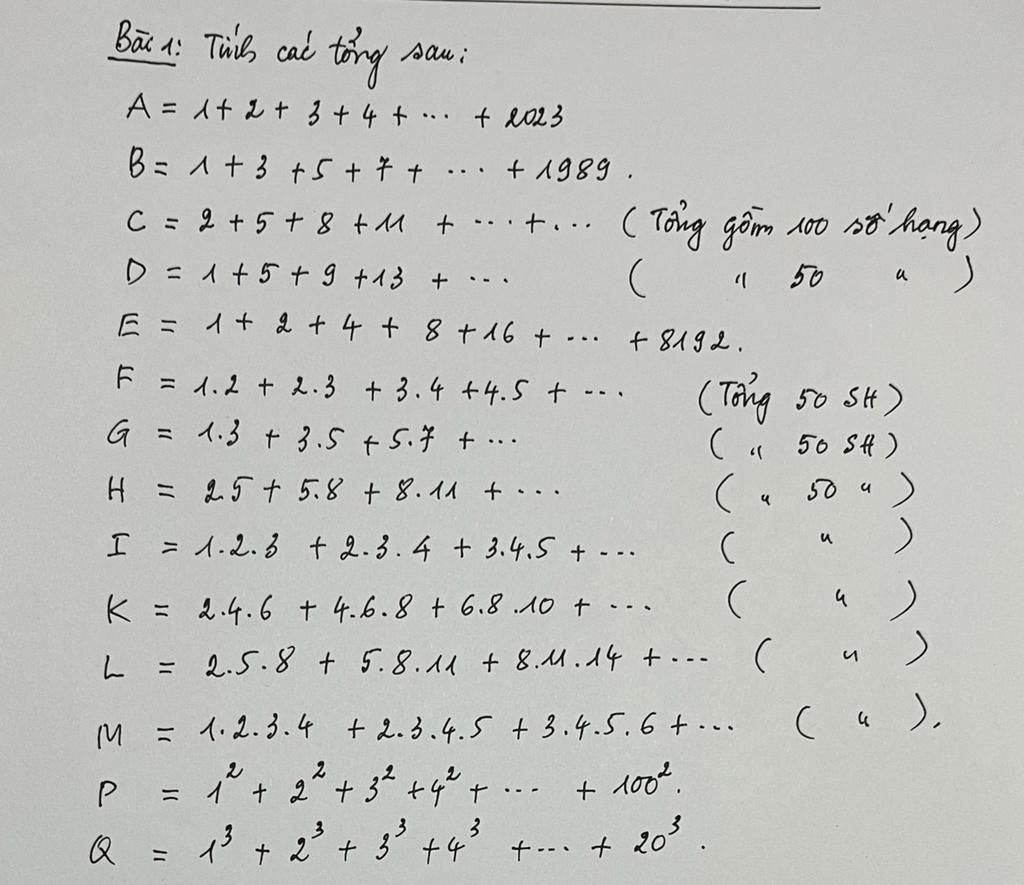 Bài 1: Tính các tổng sau:
A = 1 + 2 + 3 + 4 + ... + 2023
B = 1 + 3 + 5 + 7 + ... + 1989.
C = 2 + 5 + 8 + 11 + ... + ... (Tổng gồm 100 số hạng)
D = 1 + 5 + 9 + 13 + ... ( " 50 " )
E = 1 + 2 + 4 + 8 + 16 + ... + 8192.
F = 1.2 + 2.3 + 3.4 + 4.5 + ... (Tổng 50 SH)
G = 1.3 + 3.5 + 5.7 + ... ( " 50 SH)
H = 2.5 + 5.8 + 8.11 + ... ( " 50 " )
I = 1.2.3 + 2.3.4 + 3.4.5 + ... ( " )
K = 2.4.6 + 4.6.8 + 6.8.10 + ... ( " )
L = 2.5.8 + 5.8.11 + 8.11.14 + ... ( " )
M = 1.2.3.4 + 2.3.4.5 + 3.4.5.6 + ... ( " ).
P = 1² + 2² + 3² + 4² + ... + 100².
Q = 1³ + 2³ + 3³ + 4³ + ... + 20³.